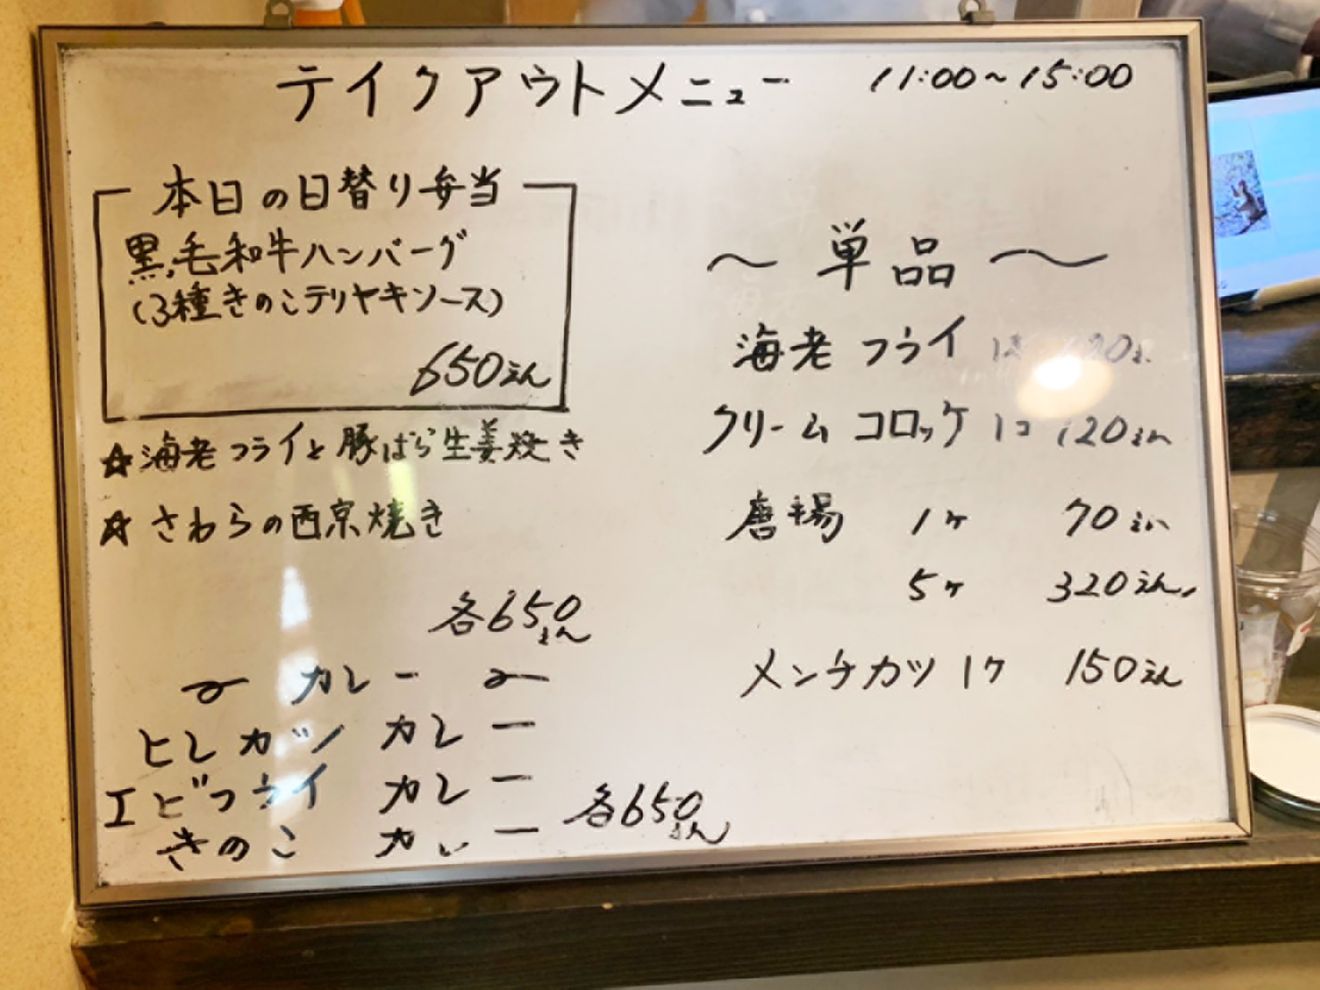 テイクアウトメニュー 11:00~15:00
本日の日替り弁当
黒毛和牛ハンバーグ
(3種きのこテリヤキソース)
650えん
☆海老フライと豚ばら生姜焼き
☆さわらの西京焼き
各650えん
カレー
ヒレカツ カレー
エビフライ カレー
きのこ カレー
各650えん
~単品~
海老フライ
クリームコロッケ 1コ 120えん
唐揚 1ヶ 70えん
5ヶ 320えん
メンチカツ 1ヶ 150えん